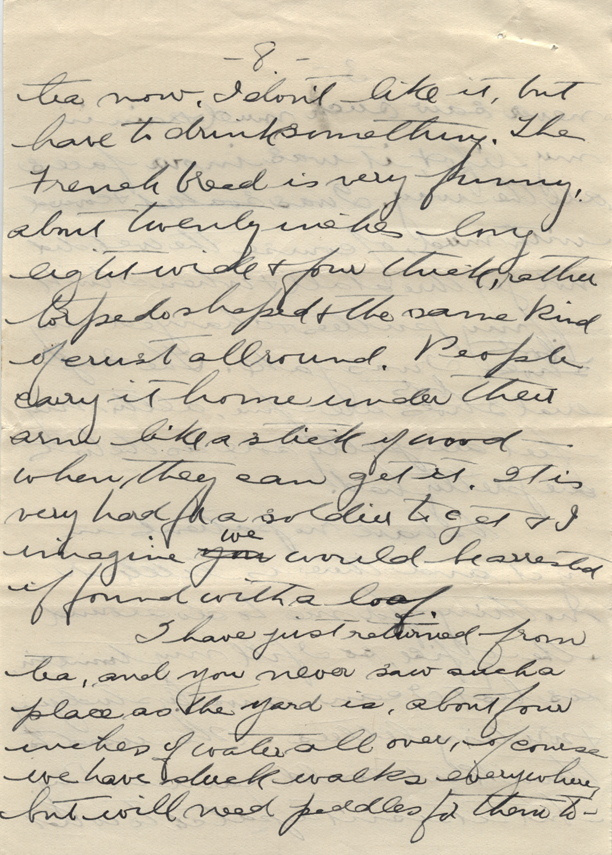 -8-
tea now. I don't like it, but
have to drink something. The
French bread is very funny,
about twenty inches long
eight wide & four thick, rather
torpedo shaped & the same kind
of crust all round. People
carry it home under their
arm like a stick of wood
when they can get it. It is
very hard for a soldier to get & I
imagine you we would be arrested
if found with a loaf.
I have just returned from
tea, and you never saw such a
place as the yard is, about four
inches of water all over, of course
we have duck walks everywhere
but will need peddles for them to-